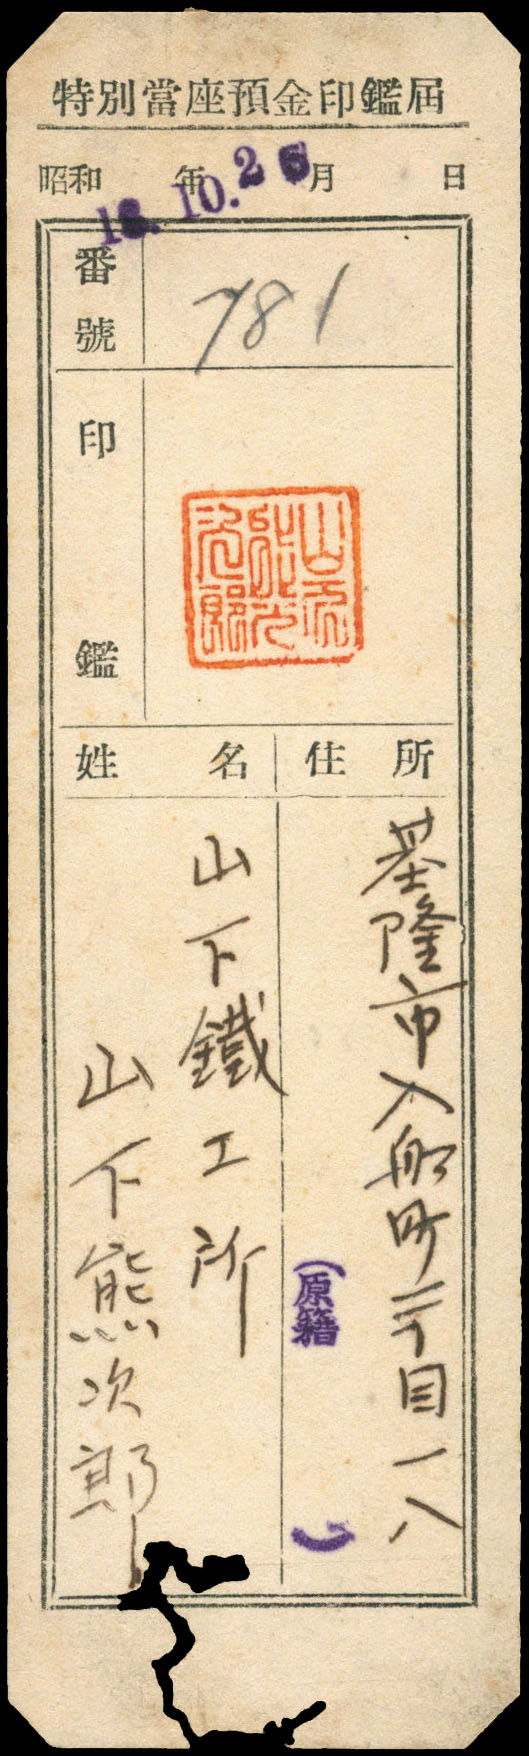 特別當座預金印鑑屆
昭和 年 月 日
18.10.26
番號
781
印鑑
山下熊次郎
姓名
住所
基隆市入船町二丁目一八
(原籍 )
山下鐵工所
山下熊次郎